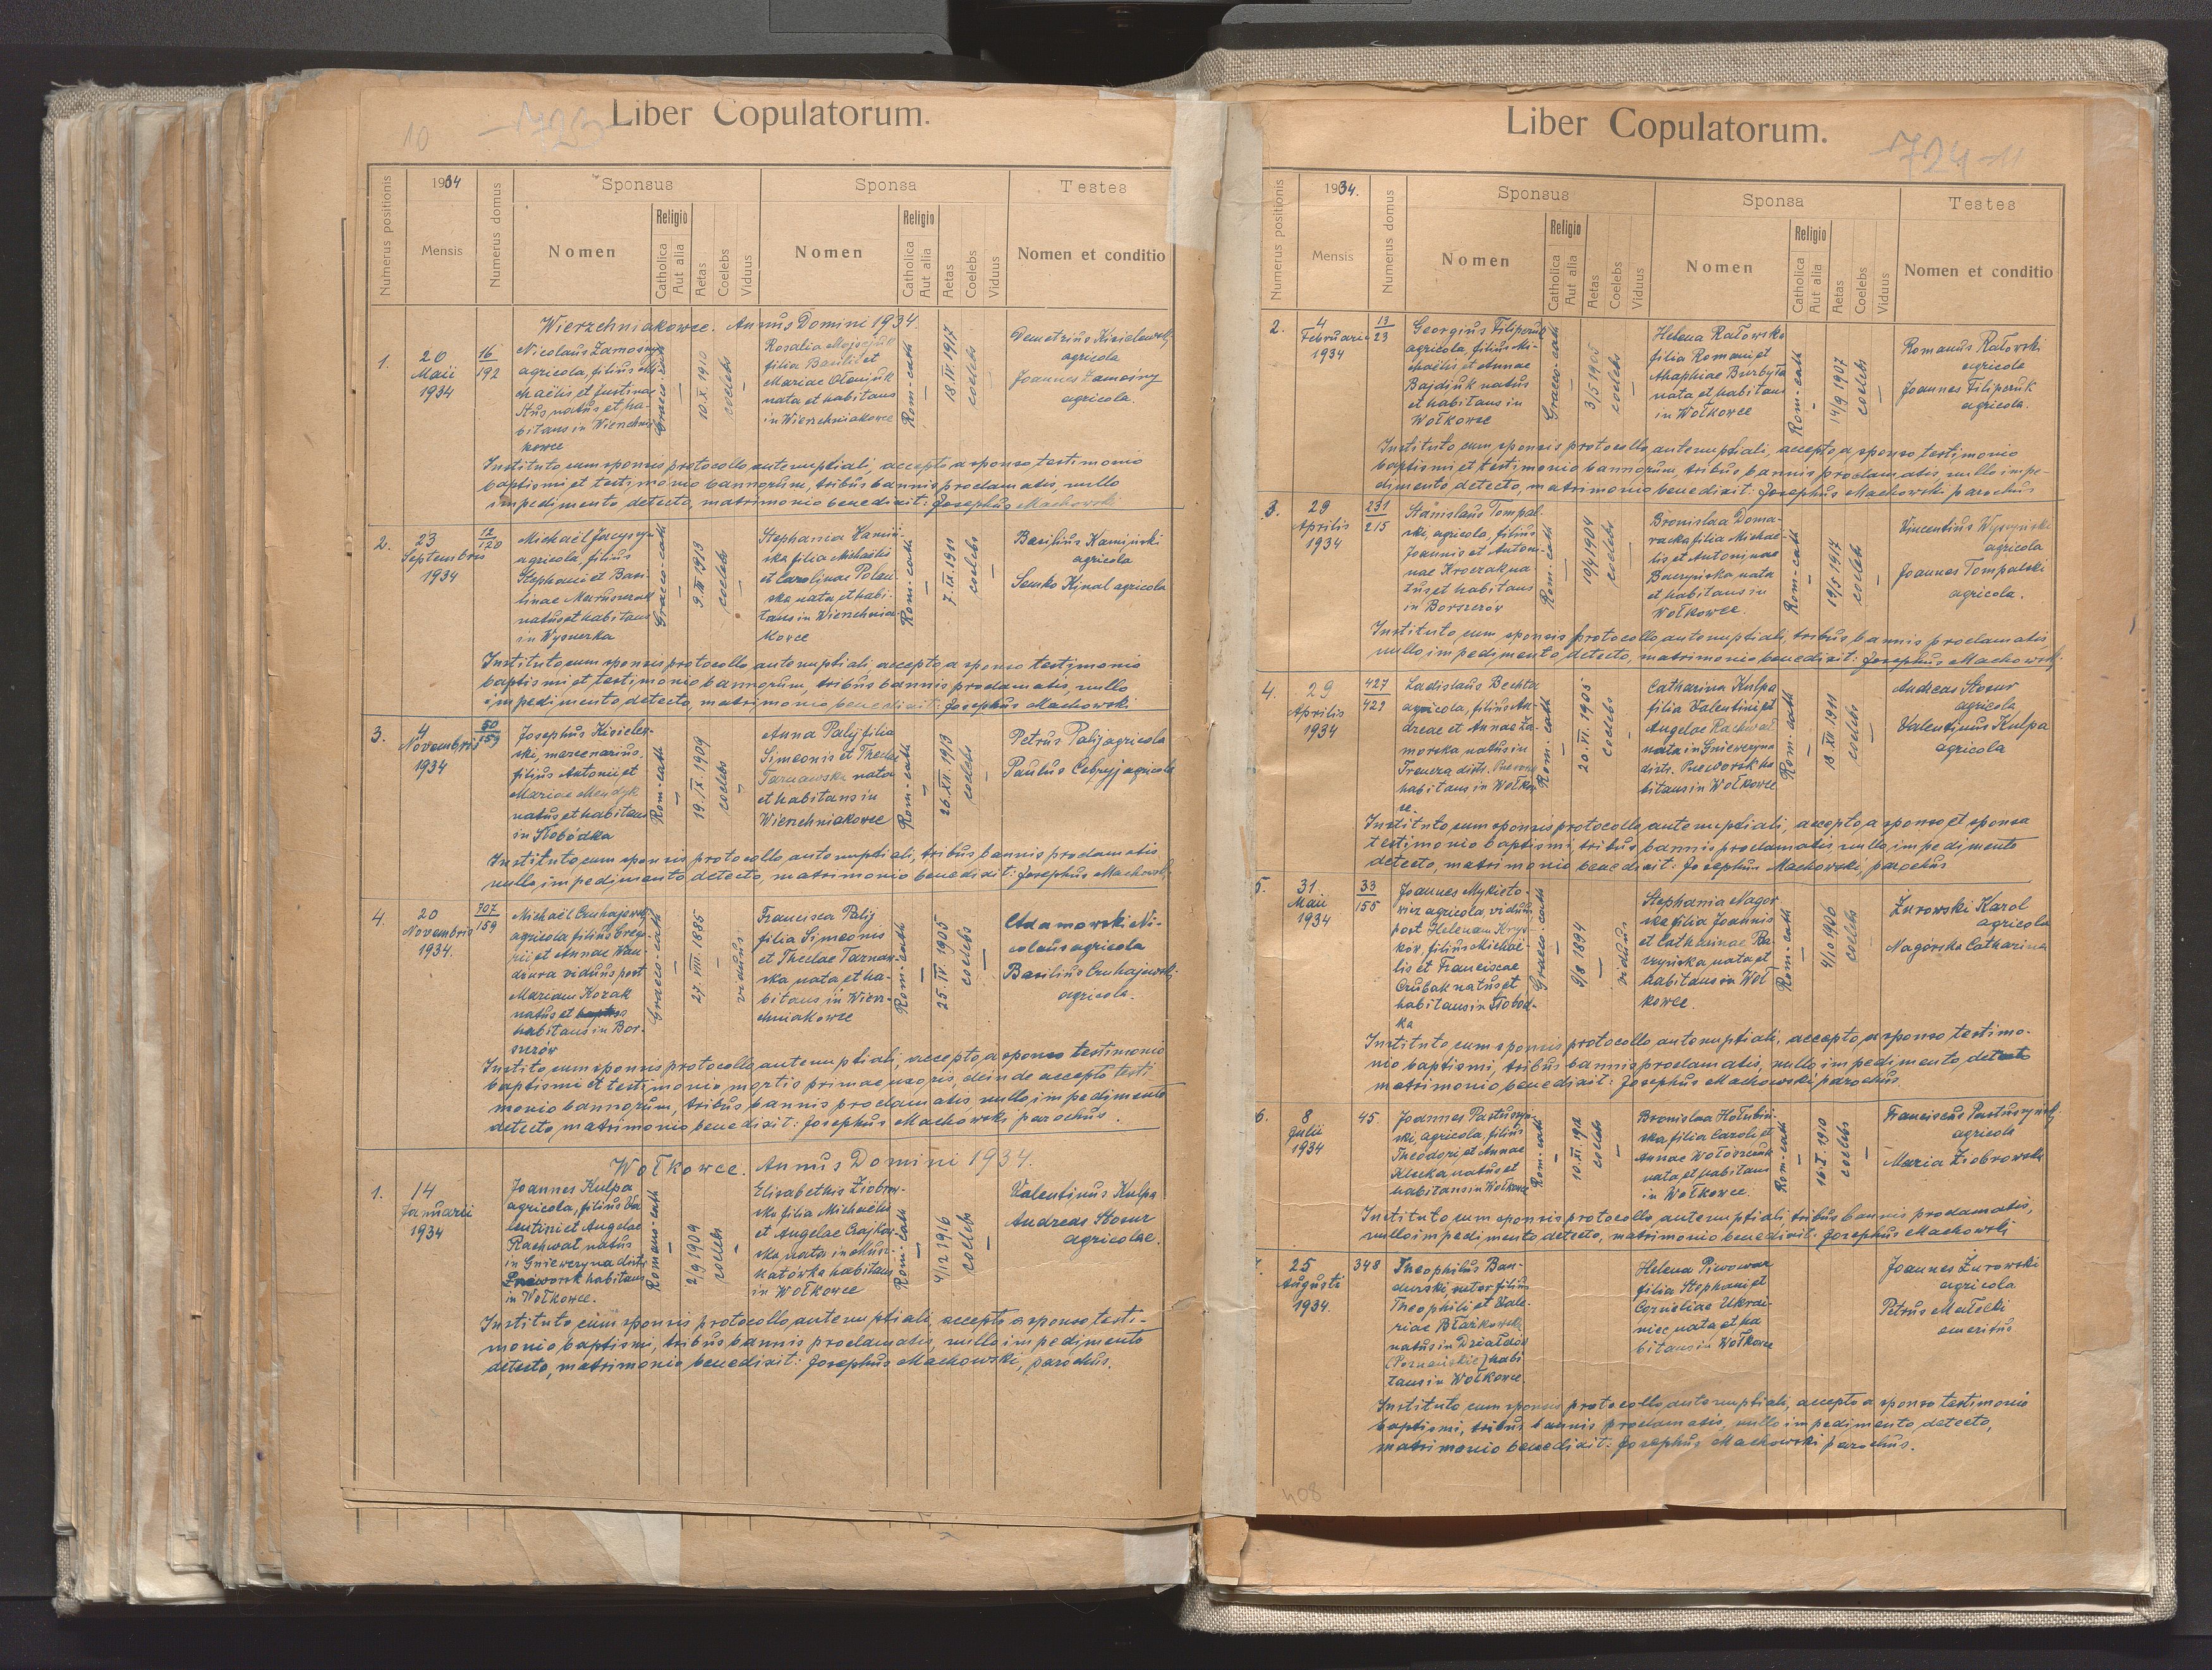 10
723
Liber Copulatorum.
Numerus positionis
1934
Mensis
Numerus domus
Sponsus
Nomen
Religio
Catholica
Aut alia
Aetas
Coelebs
Viduus
Sponsa
Nomen
Religio
Catholica
Aut alia
Aetas
Coelebs
Viduus
Testes
Nomen et conditio
Wierzchniakowce. Annus Domini 1934
1.
20
Maii
1934
16
192
Nicolaus Zamosny
agricola, filius Mi-
chaëlis et Justinae
Stus natus et ha-
bitans in Wierzchnia
kowce
Graeco-cath
10.X.1910
coelebs
Rosalia
filia Basilii et
Mariae Olenjuk
nata et habitans
in Wierzchniakowce
Rom-cath
18.IV.1917
coelebs
Demetrius Kisielewski
agricola
Joannes Zamosny
agricola.
Instituto cum sponsis protocollo antenuptiali, accepto a sponso testimonio
baptismi et testimonio bannorum, tribus bannis proclamatis, nullo
impedimento detecto, matrimonio benedixit: Josephus Machowski
2.
23
Septembris
1934
12
120
Michaël
agricola, filius
Stephani et Basi-
linae
natus et habitans
in Wysuczka
Graeco-cath
9.III.1913
coelebs
Stephania Kamiń-
ska filia Michaëlis
et Carolinae Polań-
ska nata et habi-
tans in Wierzchnia-
kowce
Rom-cath
7.IX.1911
coelebs
Basilius Kamiński
agricola
Semko Kinal agricola
Instituto cum sponsis protocollo antenuptiali, accepto a sponso testimonio
baptismi et testimonio bannorum, tribus bannis proclamatis, nullo
impedimento detecto, matrimonio benedixit: Josephus Machowski
3.
4
Novembris
1934
50
159
Josephus Kisielew-
ski, mercenarius
filius Antonii et
Mariae Mendyk
natus et habitans
in Słobódka
Rom-cath
19.IX.1909
coelebs
Anna Palij filia
Simeonis et Theclae
Tarnawska nata
et habitans in
Wierzchniakowce
Rom-cath
26.XII.1913
coelebs
Petrus Palij agricola
Paulus Cebryj agricola
Instituto cum sponsis protocollo antenuptiali, tribus bannis proclamatis
nullo impedimento detecto, matrimonio benedixit: Josephus Machowski
4.
20
Novembris
1934.
707
159
Michaël Czuhajowski
agricola filius Grego-
rii et Annae Wan-
diura viduus post
Mariam Kozak
natus et
habitans in Bor-
szczów
Graeco-cath
27.VIII.1885
viduus
Francisca Palij
filia Simeonis
et Theclae Tarnaw-
ska nata et ha-
bitans in Wierz-
chniakowce
Rom-cath
25.IV.1905
coelebs
Adamowski Ni-
colaus agricola
Basilius Czuhajowski
agricola.
Instituto cum sponsis protocollo antenuptiali, accepto a sponso testimonio
baptismi et testimonio mortis primae uxoris, deinde accepto testi
monio bannorum, tribus bannis proclamatis nullo impedimento
detecto, matrimonio benedixit: Josephus Machowski parochus.
Wołkowce. Annus Domini 1934.
1.
14
Januarii
1934
Joannes Kulpa
agricola, filius Va
lentini et Angelae
Rachwał natus
in Gniewczyna distr.
Przeworsk habitans
in Wołkowce.
Romano-cath
2/9 1909
coelebs
Elisabethis Ziobrow-
ska filia Michaëlis
et Angelae Czajkow-
ska nata in Musz-
katówka habitans
in Wołkowce
Rom-cath
4/12 1916
coelebs
Valentinus Kulpa
Andreas Stosur
agricolae.
Instituto cum sponsis protocollo antenuptiali, accepto a sponso testi-
monio baptismi, tribus bannis proclamatis, nullo impedimento
detecto, matrimonio benedixit: Josephus Machowski, parochus.
Liber Copulatorum.
724
11
Numerus positionis
1934.
Mensis
Numerus domus
Sponsus
Nomen
Religio
Catholica
Aut alia
Aetas
Coelebs
Viduus
Sponsa
Nomen
Religio
Catholica
Aut alia
Aetas
Coelebs
Viduus
Testes
Nomen et conditio
2.
4
Februarii
1934
13
23
Georgius Filipczuk
agricola, filius Mi-
chaëlis et Annae
Bajdiuk natus
et habitans in
Wołkowce
Graeco-cath
3/5 1905
coelebs
Helena Ratowska
filia Romani et
Ahaphiae Burbyła
nata et habitans
in Wołkowce
Rom-cath
14/9 1907
coelebs
Romanus Ratowski
agricola
Joannes Filipczuk
agricola.
Instituto cum sponsis protocollo antenuptiali, accepto a sponso testimonio
baptismi et testimonio bannorum, tribus bannis proclamatis, nullo impe-
dimento detecto, matrimonio benedixit: Josephus Machowski parochus
3.
29
Aprilis
1934
231
215
Stanislaus Tompal-
ski, agricola, filius
Joannis et Antoni-
nae Kroczak na
tus et habitans
in Borszczów
Rom-cath
19/4 1904
coelebs
Bronislaa Doma-
racka filia Michaë-
lis et Antoninae
Baczyńska nata
et habitans in
Wołkowce.
Rom-cath
19/5 1917
coelebs
Vincentius Wyszyński
agricola
Joannes Tompalski
agricola.
Instituto cum sponsis protocollo antenuptiali, tribus bannis proclamatis,
nullo impedimento detecto, matrimonio benedixit: Josephus Machowski
4.
29
Aprilis
1934
427
429
Ladislaus Bechta
agricola, filius An-
dreae et Annae Za-
morska natus in
Tryncza distr. Przewors
habitans in Wołkow
ce.
Rom-cath
20.VI.1905
coelebs
Catharina Kulpa
filia Valentini et
Angelae Rachwał
nata in Gniewczyna
distr. Przeworsk ha
bitans in Wołkowce
Rom-cath
13.XI.1911
coelebs
Andreas Stosur
agricola
Valentinus Kulpa
agricola
Instituto cum sponsis protocollo antenuptiali, accepto a sponso et sponsa
testimonio baptismi, tribus bannis proclamatis nullo impedimento
detecto, matrimonio benedixit: Josephus Machowski, parochus
5.
31
Maii
1934
33
155
Joannes Mykieto-
wicz agricola, viduus
post Helenam Kryw-
ków, filius Michaë-
lis et Franciscae
Czubak natus et
habitans in Słobod-
ka
Graeco-cath
9/8 1894
viduus
Stephania Nagór
ska filia Joannis
et Catharinae Ba-
czyńska nata et
habitans in Woł
kowce.
Rom-cath
4/10 1906
coelebs
Żurowski Karol
agricola
Nagórska Catharina
Instituto cum sponsis protocollo antenuptiali, accepto a sponso testimo-
nio baptismi, tribus bannis proclamatis, nullo impedimento detecto
matrimonio benedixit: Josephus Machowski parochus.
6.
8
Julii
1934
45.
Joannes Pastuszyń-
ski, agricola, filius
Theodori et Annae
Klocka natus et
habitans in Wołkowce
Rom-cath
10.XI.1912
coelebs
Bronislaa Hołubiń-
ska filia Caroli et
Annae Wołoszczuk
nata et habitans
in Wołkowce.
Rom-cath
16.X.1910
coelebs
Franciscus Pastuszyński
agricola
Maria Ziobrowska
Instituto cum sponsis protocollo antenuptiali, tribus bannis proclamatis,
nullo impedimento detecto, matrimonio benedixit: Josephus Machowski
25
Augusti
1934.
348
Theophilus Ban-
durski, filius
Theophili et Vale-
riae Błańkowska
natus in Działdów
(Poznańskie) habi
tans in Wołkowce.
Helena Piwowar
filia Stephani et
Corneliae Ukrai-
niec nata et ha
bitans in Wołkowce
Joannes Żurowski
agricola
Petrus Małecki
emeritus
Instituto cum sponsis protocollo antenuptiali, accepto a sponso testimonio
baptismi, tribus bannis proclamatis, nullo impedimento detecto,
matrimonio benedixit: Josephus Machowski parochus.
408